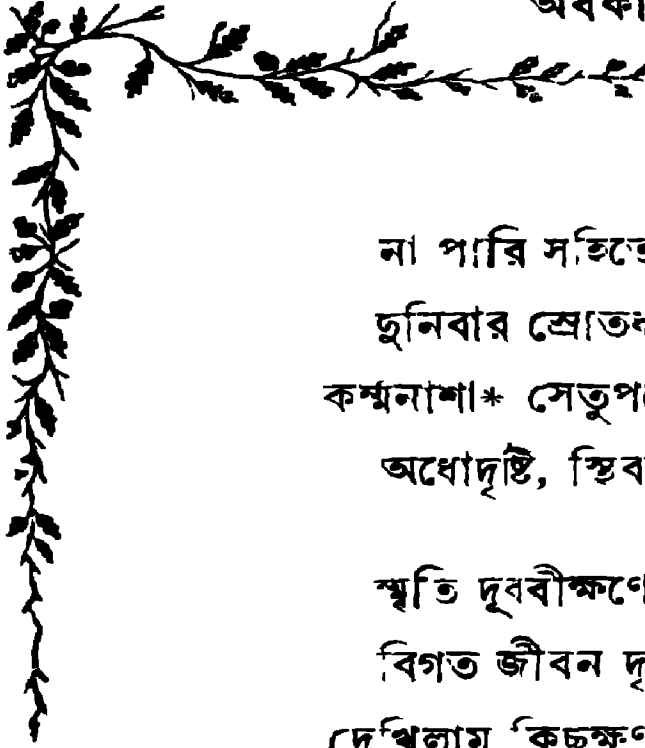 অবকা
না পারি সহিতে
দুনিবার স্রোতধ
কম্মনাশা* সেতুপ
অধোদৃষ্টি, স্থিব
স্মৃতি দূববীক্ষণে
বিগত জীবন দৃ
দেখিলাম কিছুক্ষণ